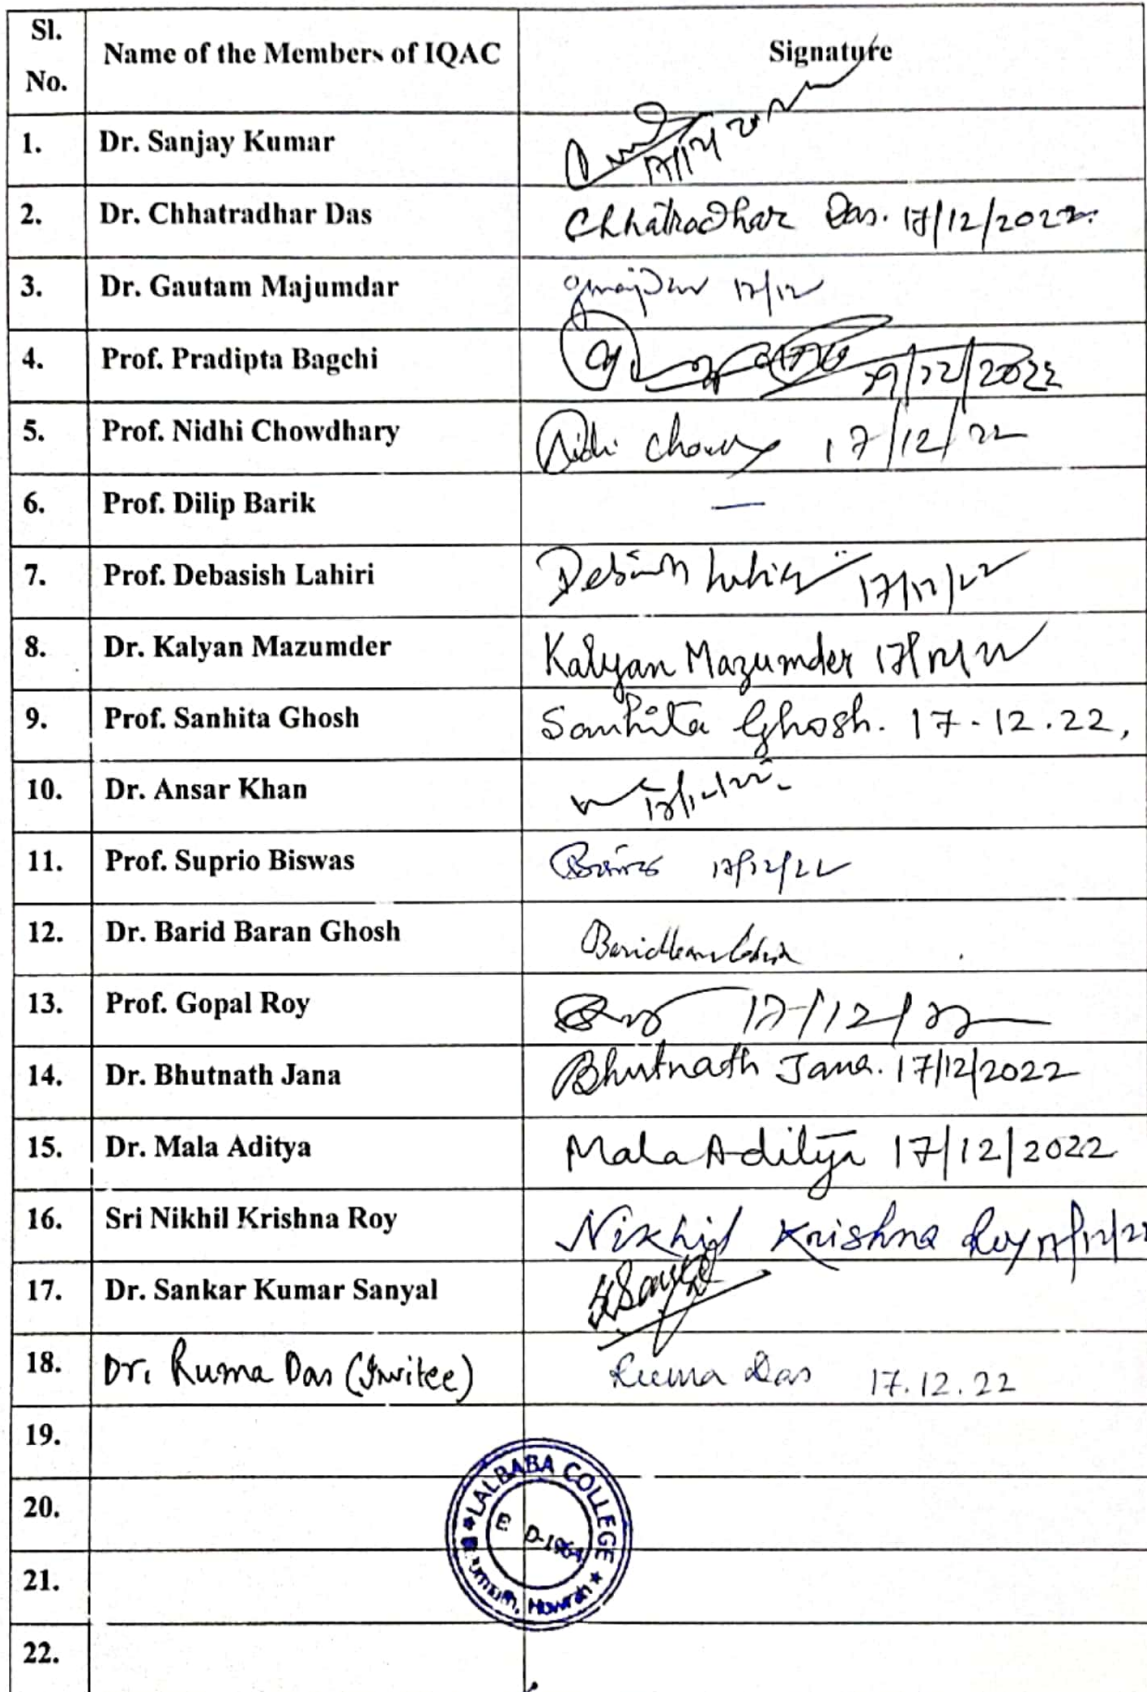 Sl. No. Name of the Members of IQAC Signature
1. Dr. Sanjay Kumar
2. Dr. Chhatradhar Das Chhatradhar Das. 17/12/2022.
3. Dr. Gautam Majumdar 17/12
4. Prof. Pradipta Bagchi
5. Prof. Nidhi Chowdhary Nidhi 17/12/22
6. Prof. Dilip Barik —
7. Prof. Debasish Lahiri 17/12/22
8. Dr. Kalyan Mazumder Kalyan Mazumder 17/12/22
9. Prof. Sanhita Ghosh Sanhita Ghosh. 17-12.22,
10. Dr. Ansar Khan
11. Prof. Suprio Biswas 17/12/22
12. Dr. Barid Baran Ghosh
13. Prof. Gopal Roy 17/12/22
14. Dr. Bhutnath Jana Bhutnath Jana. 17/12/2022
15. Dr. Mala Aditya Mala Aditya 17/12/2022
16. Sri Nikhil Krishna Roy Nikhil Krishna Roy
17. Dr. Sankar Kumar Sanyal
18. Dr. Ruma Das (Invitee) Ruma Das 17.12.22
19.
20.
21.
22.
LALBABA COLLEGE
Howrah